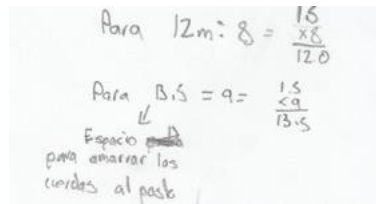 Para 12m: 8 = 15
x8
120
Para 13.5 = 9 = 1.5
x9
13.5
Espacio
para amarrar las
cuerdas al poste